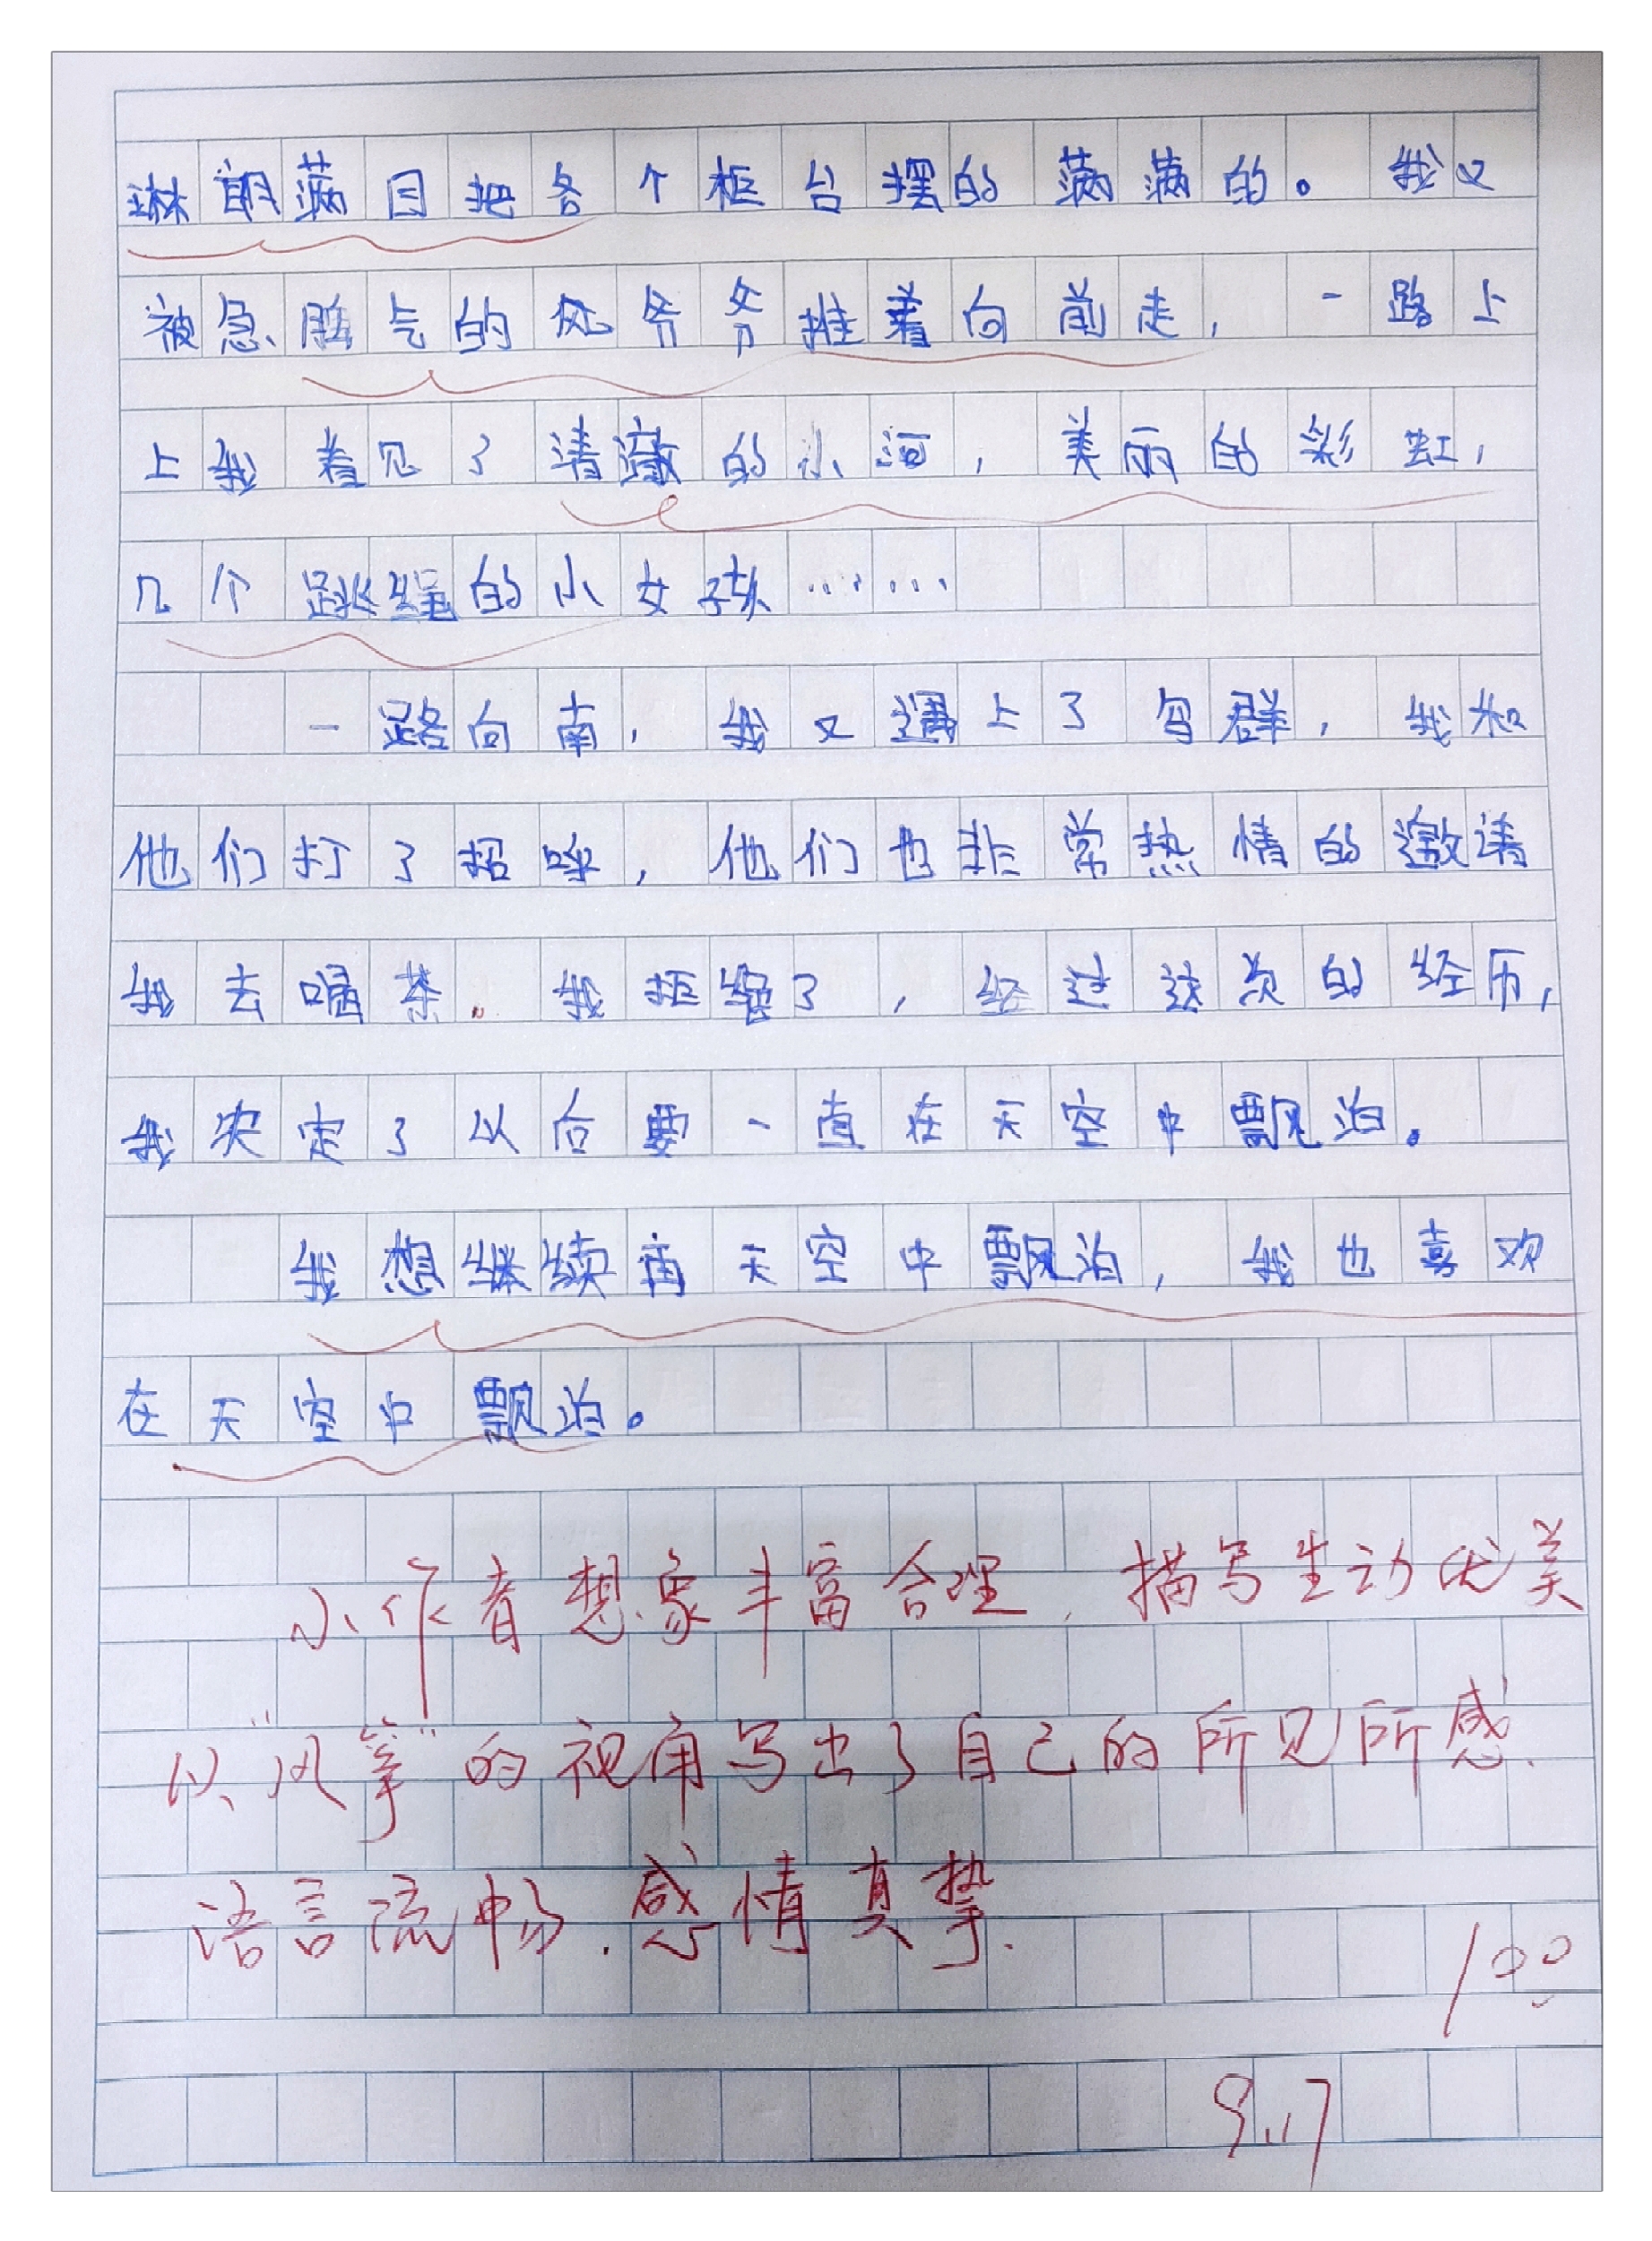 琳朗满目把各个柜台摆的满满的。我又
被急脾气的风爷爷推着向前走，一路上
上我看见了清澈的小河，美丽的彩虹，
几个跳绳的小女孩……
一路向南，我又遇上了鸟群，我和
他们打了招呼，他们也非常热情的邀请
我去喝茶。我拒绝了，经过这次的经历，
我决定了以后要一直在天空中飘泊。
我想继续再天空中飘泊，我也喜欢
在天空中飘泊。
小作者想象丰富合理，描写生动优美
以"风筝"的视角写出了自己的所见所感.
语言流畅.感情真挚.
100
9.17